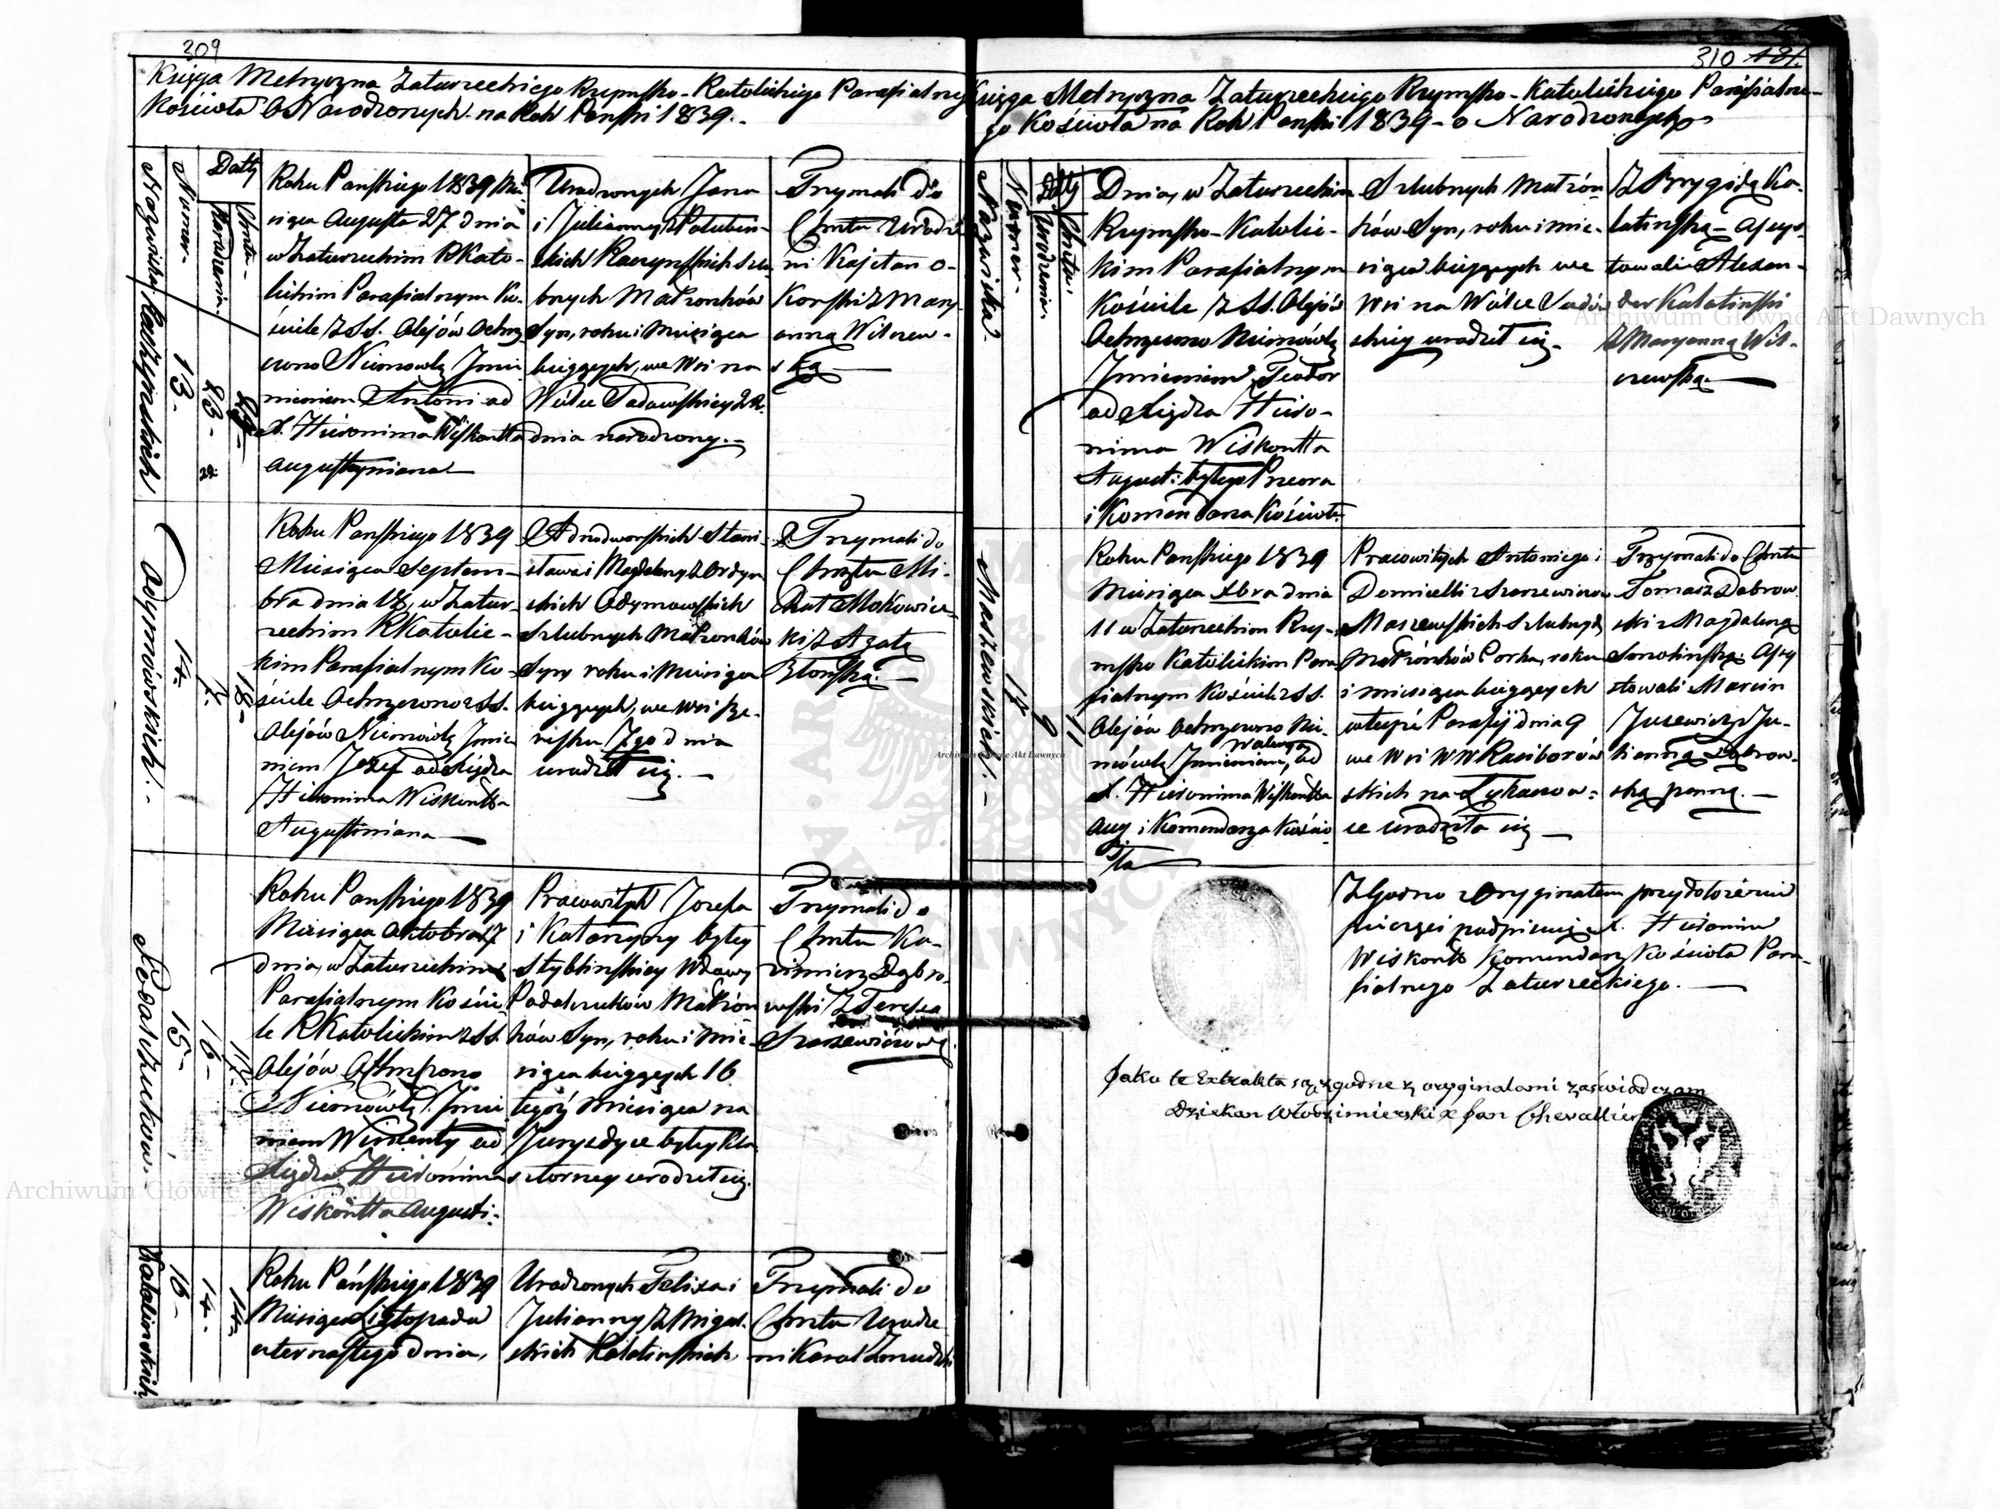 309
Księga Metryczna Zaturzeckiego Rzymsko-Katolickiego Parafialnego
Kościoła o Narodzonych na Rok Pański 1839.
Nazwiska
Numer
Datty
Urodzenia
Chrztu
Raczyńskich
13.
23
27
Roku Pańskiego 1839 Mie-
siąca Augusta 27 dnia
w Zaturzeckim RKato-
lickim Parafialnym Ko-
ściele z SS. Olejów Ochrz-
czono Niemowlę Imie-
nieniem Antoni od
X. Hieronima Wiskontta
Augustyniana
Urodzonych Jana
i Julianny z
Raczyńskich Szlu-
bnych Małżonków
Syn, roku i Miesiąca
bieżących, we Wsi na
Wólce Sadowskiey 23.
dnia narodzony.
Trzymali do
Chrztu Urodze-
ni Kajetan O-
korski z Mary-
anną Wilczew-
ską
Adymowskich.
14
7.
18
Roku Pańskiego 1839
Miesiąca Septem-
bra dnia 18, w Zatur-
zeckim RKatolic-
kim Parafialnym Ko-
ściele Ochrzczono z SS.
Olejów Niemowlę Imie
niem Jozef od Xiędza
Hieronima Wiskontta
Augustiniana
Jednodworskich Stani-
sława i Magdaleny z Ordyn
skich Adymowskich
Szlubnych Małżonków
Syn, roku i Miesiąca
bieżących, we Wsi Sze-
7go dnia
urodził się.
Trzymali do
Chrztu Mi-
chał Mokowiec-
ki z Agatą
Błońską.
Podalczuków.
15
16
17.
Roku Pańskiego 1839
Miesiąca Oktobra 17
dnia, w Zaturzeckim
Parafialnym Koście
le RKatolickim z SS.
Olejów Ochrzczono
Niemowlę, Imie
niem Wincenty od
Xiędza Hieronima
Wiskontta Augusti-
Pracowitych Jozefa
i Katarzyny byłey
Styblinskiey Wdowy
Podalczuków Małżon
ków Syn, roku i Mie-
siąca bieżących 16
tegóż Miesiąca na
Juryzdyce byłey Kla
sztorney urodził się.
Trzymali do
Chrztu Ka-
zimierz Dąbro-
wski z Teressą
Szaszewiczową.
Kalatinskich
16
14.
14
Roku Pańskiego 1839
Miesiąca Listopada
czternastego dnia,
Urodzonych Felixa i
Julianny z Migul-
skich Kalatinskich
Trzymali do
Chrztu Urodze
ni Karol Zmudzki
310 181.
Księga Metryczna Zaturzeckiego Rzymsko-Katolickiego Parafialne-
go Kościoła na Rok Pański 1839 o Narodzonych
Nazwiska
Numer
Datty
Urodzenia
Chrztu
Dnia, w Zaturzeckim
Rzymsko-Katolic-
kim Parafialnym
Kościele z SS. Olejów
Ochrzczono Niemowlę
Imieniem Teodor
od Xiędza Hiero-
nima Wiskontta
August: byłego Przeora
i Komendarza Kościoła
Szlubnych Małżon-
ków Syn, roku i mie-
siąca bieżących we
Wsi na Wólce Sadow-
skiey urodził się.
Z Brygidą Ka-
latinską - Assys-
towali Alexan-
der Kalatinski
z Maryanną Wil-
czewską.
Maszewskich.
17
9
11
Roku Pańskiego 1839
Miesiąca Xbra dnia
11 w Zaturzeckim Rzy-
msko Katolickim Para
fialnym Kościele z SS.
Olejów Ochrzczono Nie-
mowlę Imieniem Walerya, od
X. Hieronima Wiskontta
Aug i Komendarza Kościo-
ła
Pracowitych Antoniego i
Domicelli z Szaszewiczów
Maszewskich Szlubnych
Małżonków Corka, roku
i miesiąca bieżących
w teyże Parafij dnia 9
we Wsi WW Raciborow
skich na Łykaszow-
ce urodziła się
Trzymali do Chrztu
Tomasz Dąbrow
ski z Magdaleną
Smolinską. Assy
stowali Marcin
Jusewicz z Ju-
lianną Dąbrow-
ską panną.
Zgodno z Oryginałem przy dołożeniu
pieczęci podpisuję X. Hieronim
Wiskontt Komendarz Kościoła Para-
fialnego Zaturzeckiego.
Jako te Extrakta są zgodne z oryginałami zaświadczam
Dziekan Włodzimierski X Jan Chevallier
Archiwum Główne Akt Dawnych
Archiwum Główne Akt Dawnych
Archiwum Główne Akt Dawnych